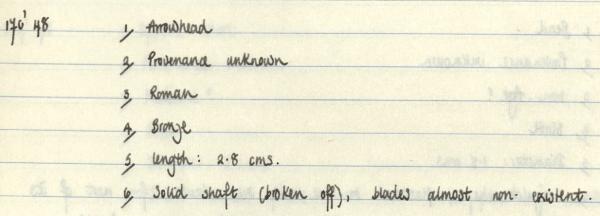 170' 48 1, Arrowhead
2, Provenance unknown
3, Roman
4, Bronze
5, length: 2.8 cms.
6, Solid shaft (broken off), blades almost non-existent.